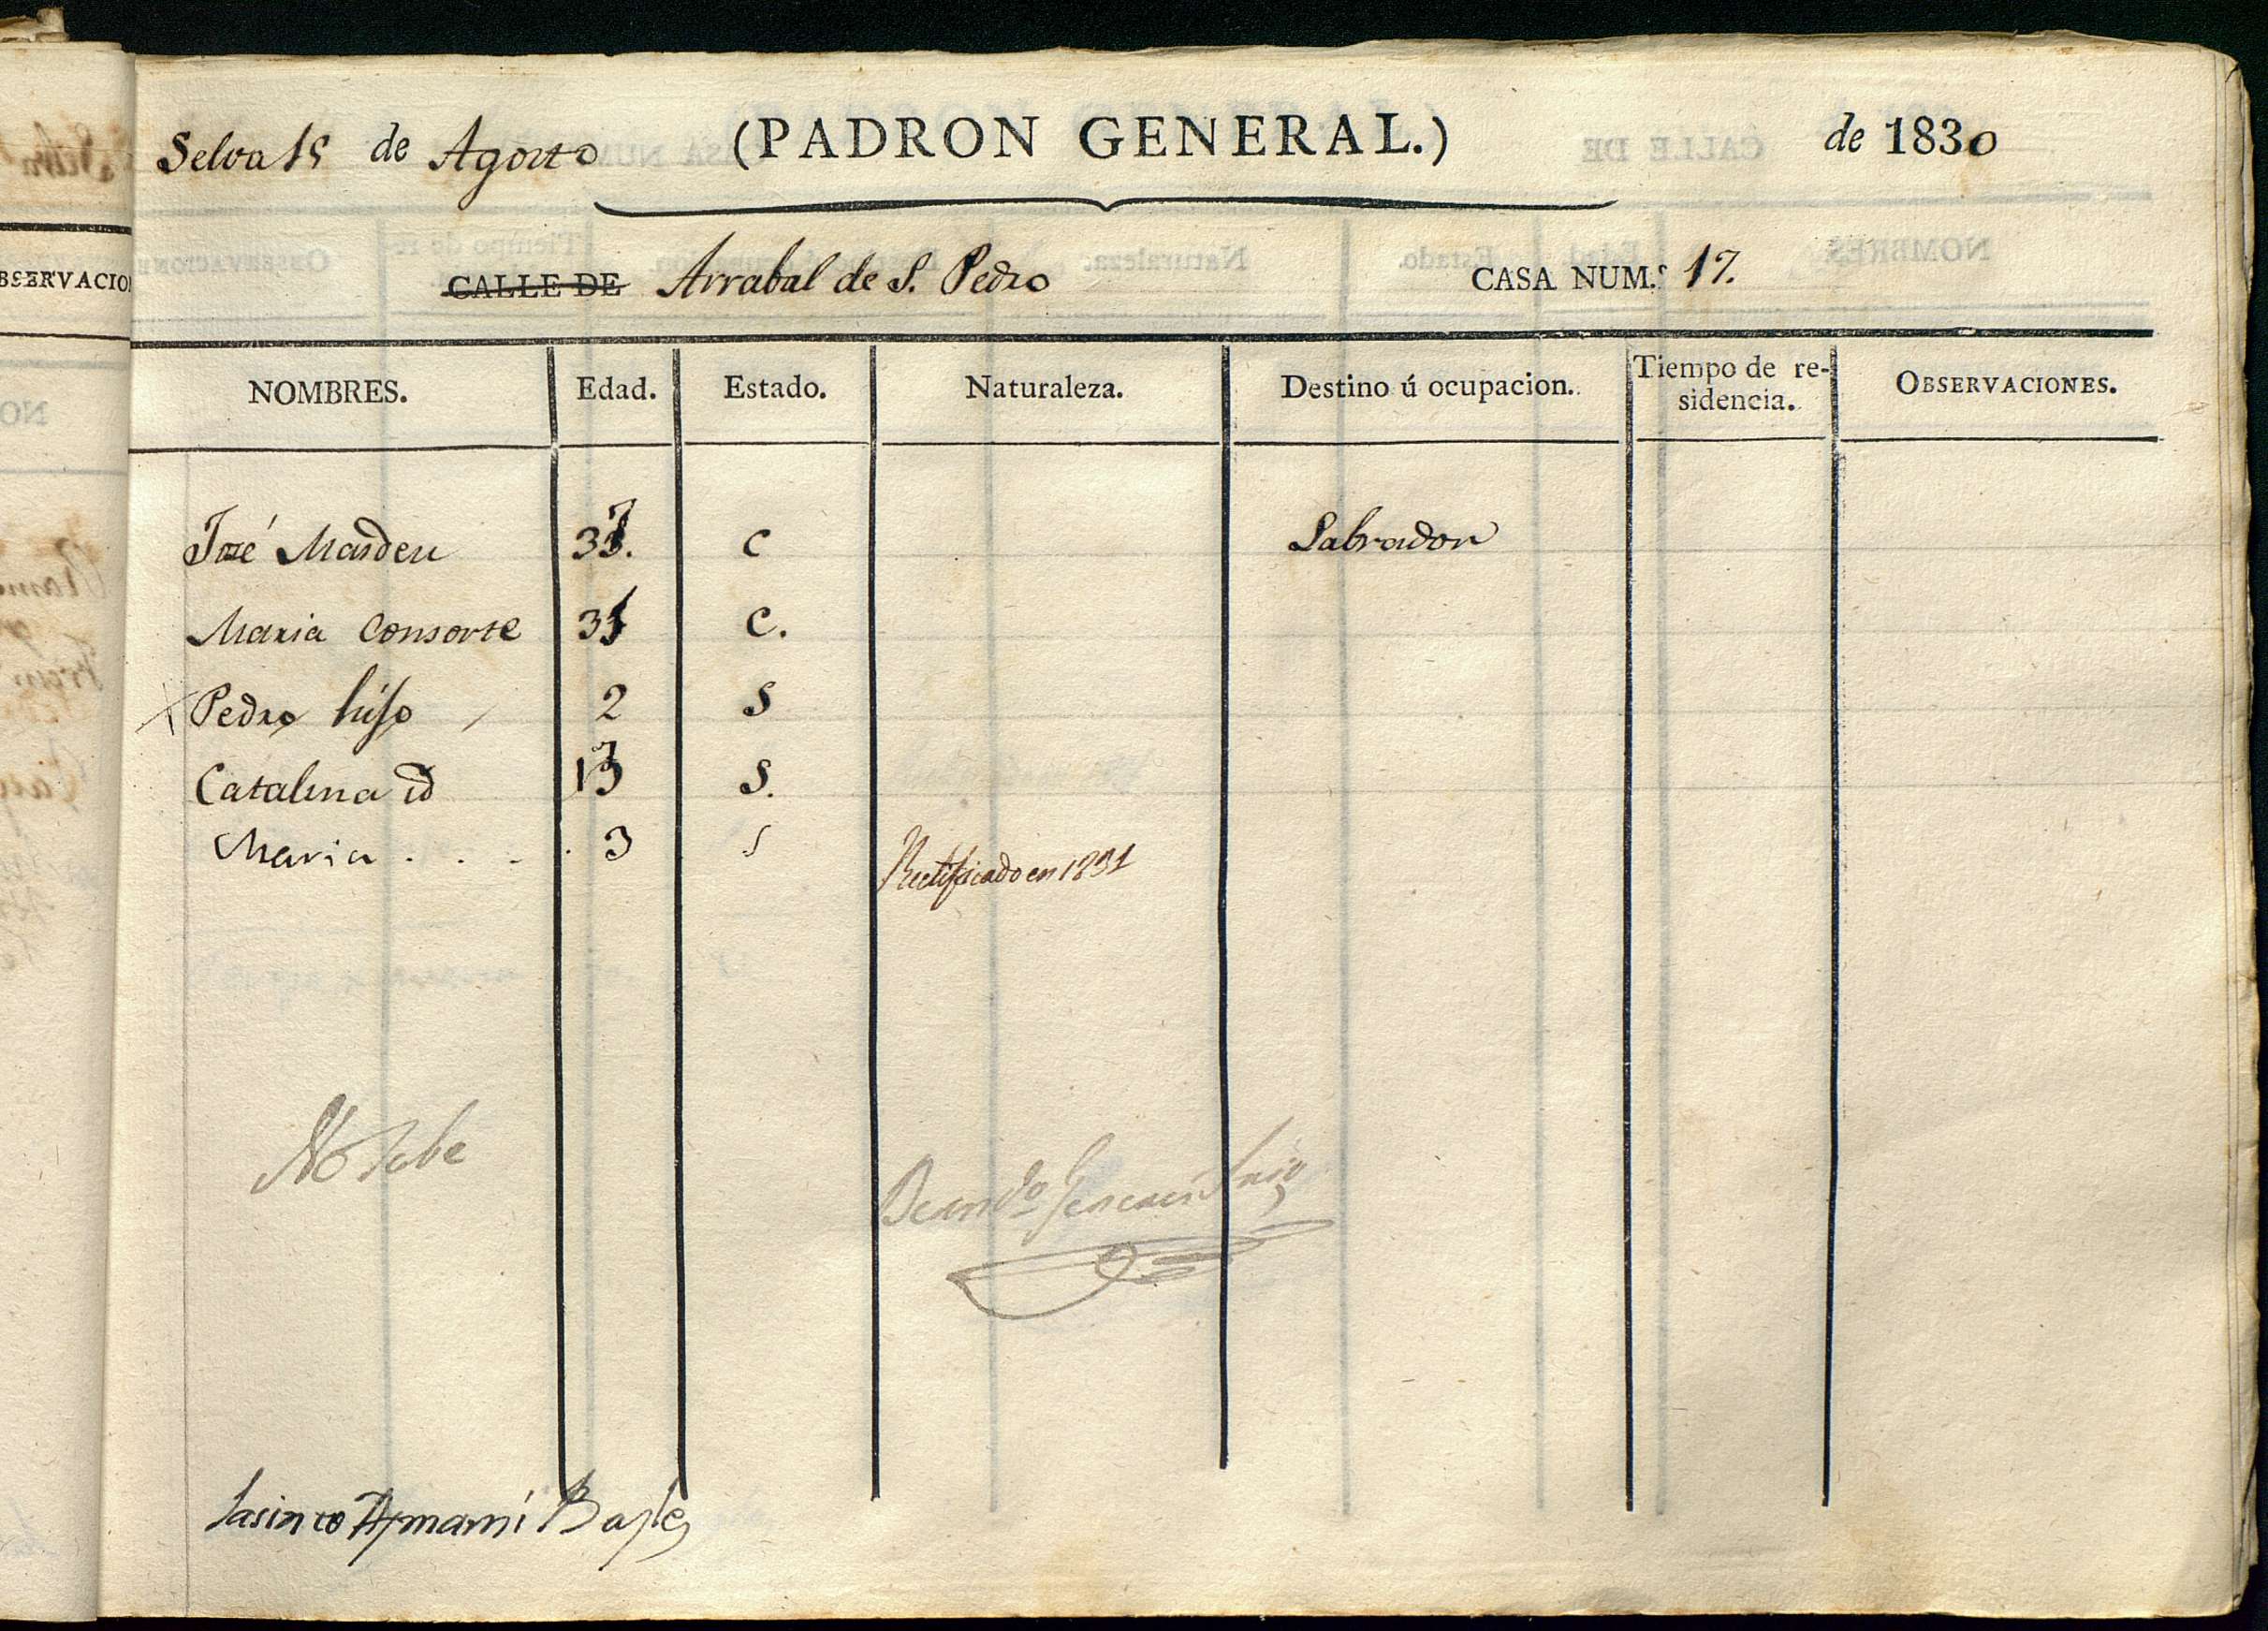 Selva 15 de Agosto (PADRON GENERAL.) de 1830
CALLE DE Arrabal de S. Pedro CASA NUM.º 17.
NOMBRES. Edad. Estado. Naturaleza. Destino ú ocupacion. Tiempo de re-
sidencia. OBSERVACIONES.
José Masdeu C Labrador
Maria Consorte C.
Pedro hijo 2 S
Catalina id S.
Maria . . . . 3 S
Rectificado en 1831
No sabe
Jasinto Armamí Bayle